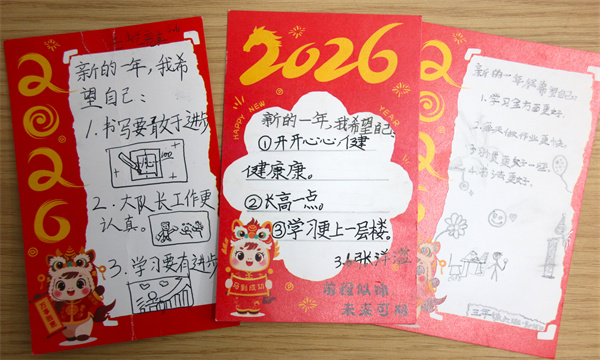 2026
新的一年,我希
望自己:
1.书写要敢于进步
2.大队长工作更
认真。
3.学习要有进步
2026
HAPPY NEW YEAR
新的一年,我希望自己:
①开开心心,健
健康康。
②长高一点。
③学习更上一层楼。
3.1张洋
马到成功
前程似锦
未来可期
新的一年,我希望自己:
1.学习全方面更好。
2.每次做作业更